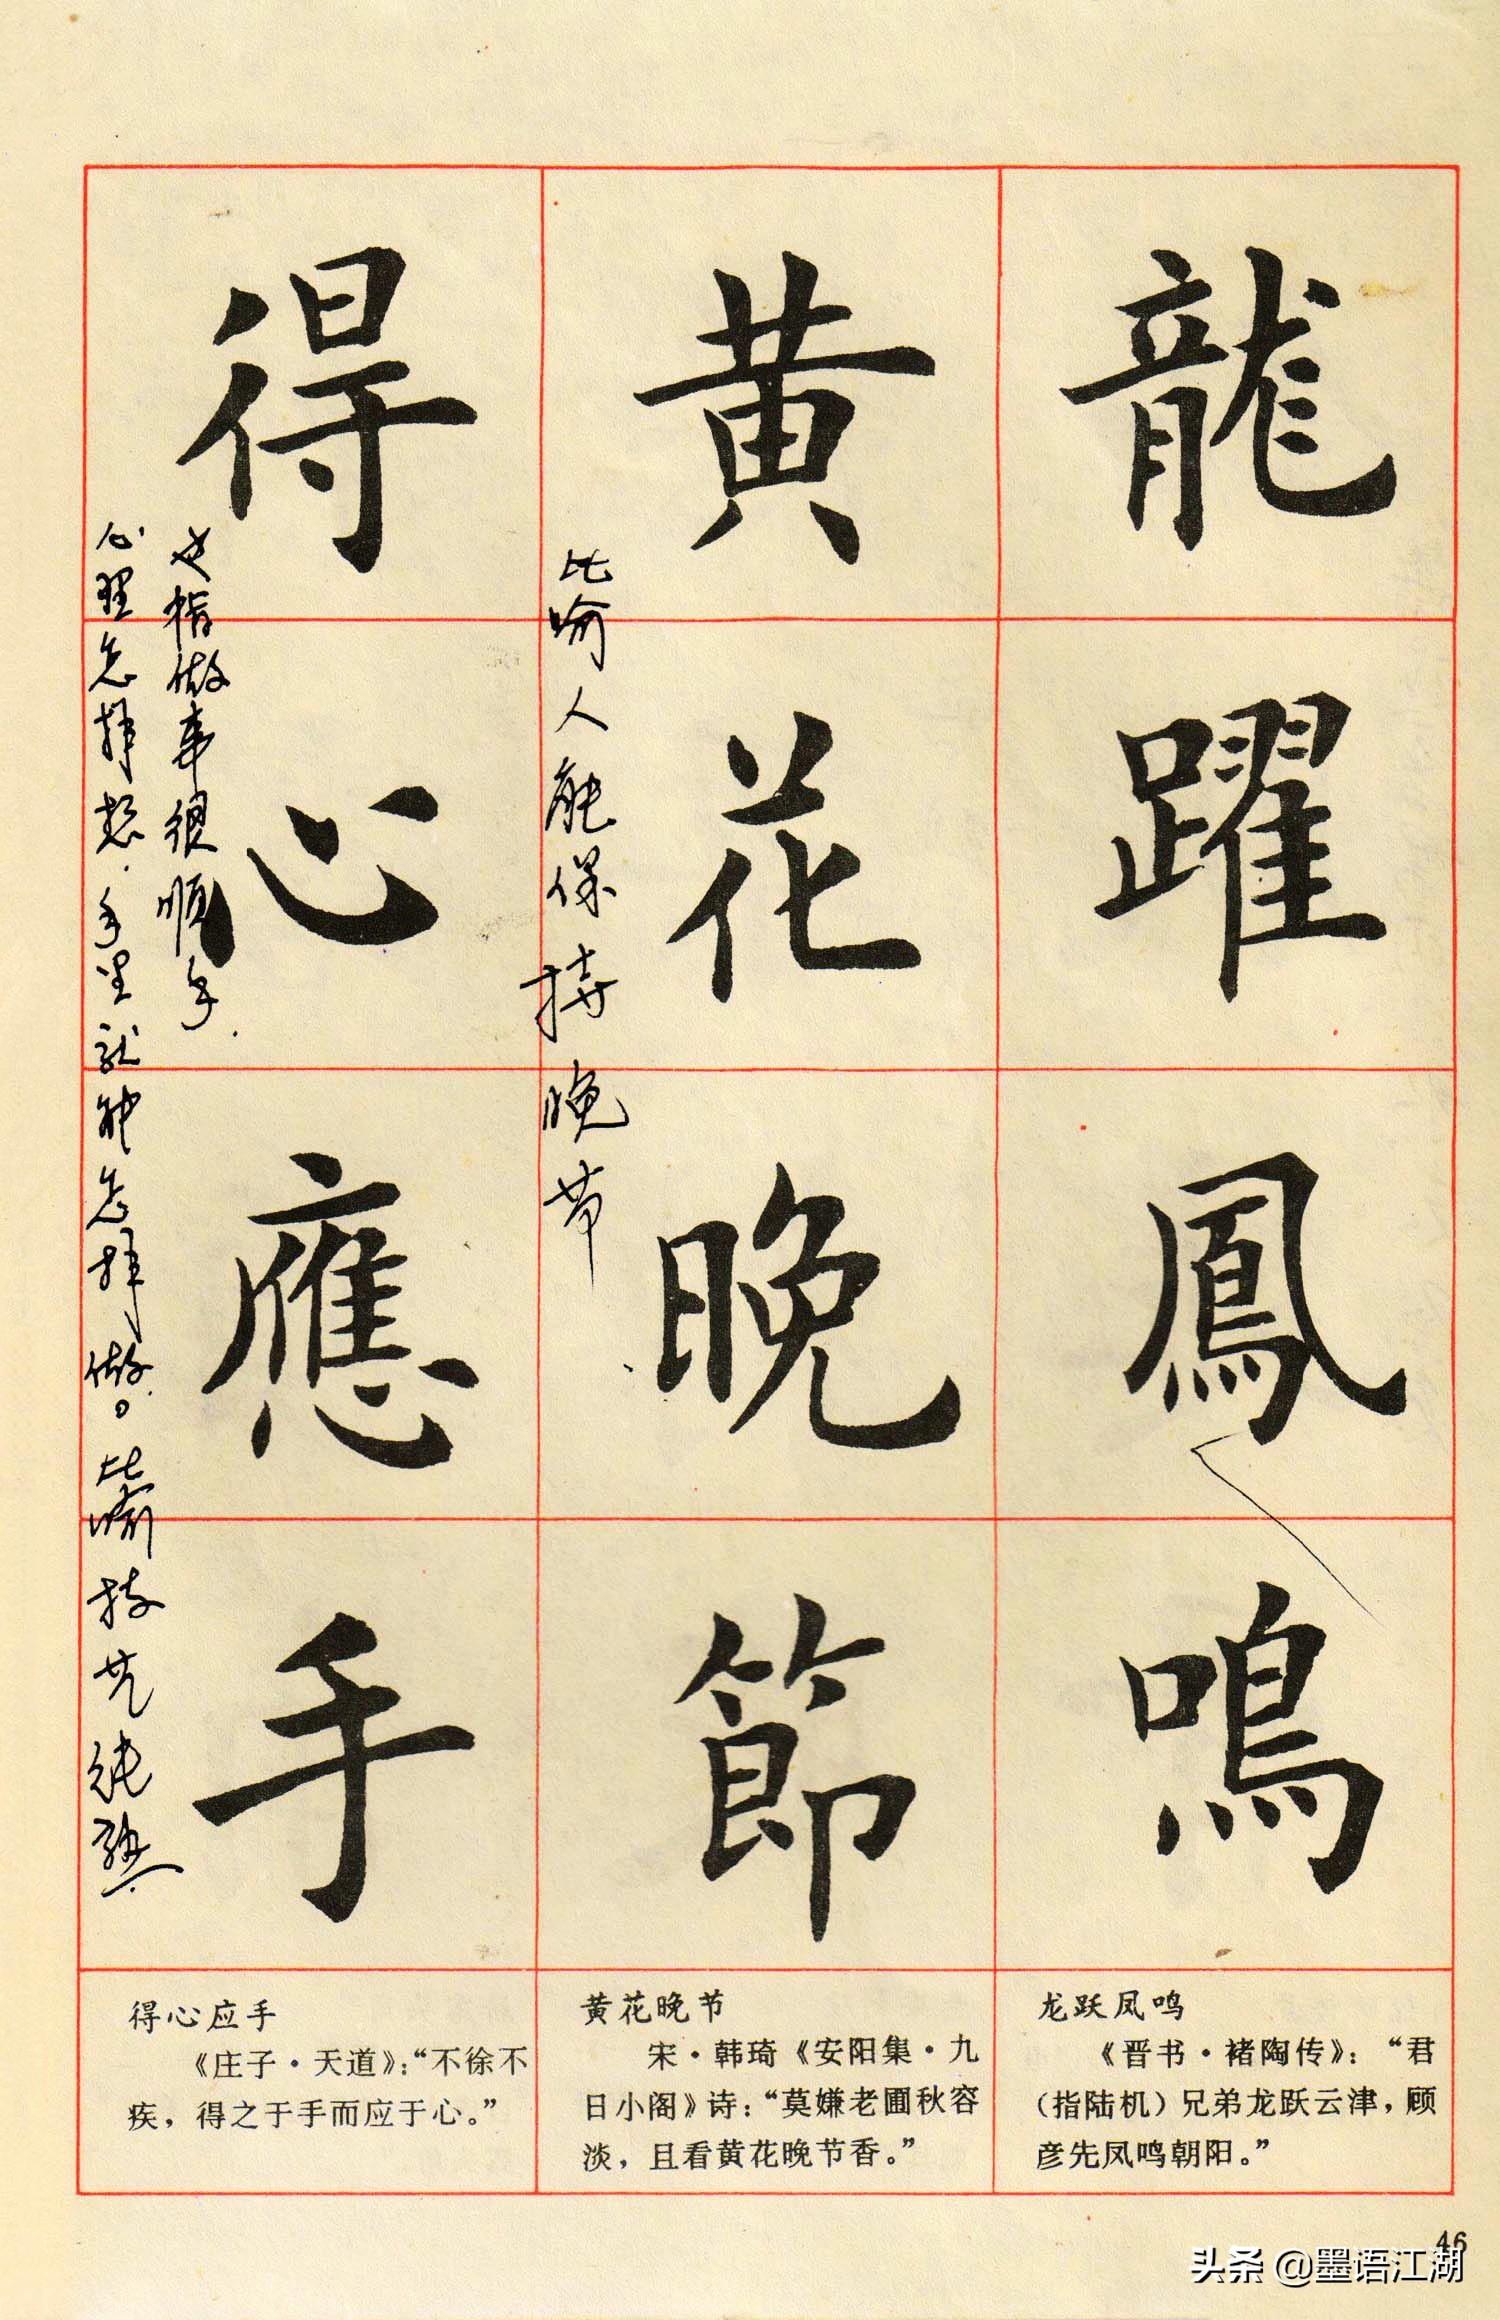 龍躍鳳鳴
黄花晚節
比喻人能保持晚节
得心應手
也指做事很顺手
心理怎样想.手里就能怎样做。比喻技艺纯熟
龙跃凤鸣
《晋书·褚陶传》：“君
（指陆机）兄弟龙跃云津，顾
彦先凤鸣朝阳。”
黄花晚节
宋·韩琦《安阳集·九
日小阁》诗：“莫嫌老圃秋容
淡，且看黄花晚节香。”
得心应手
《庄子·天道》：“不徐不
疾，得之于手而应于心。”
46
头条@墨语江湖